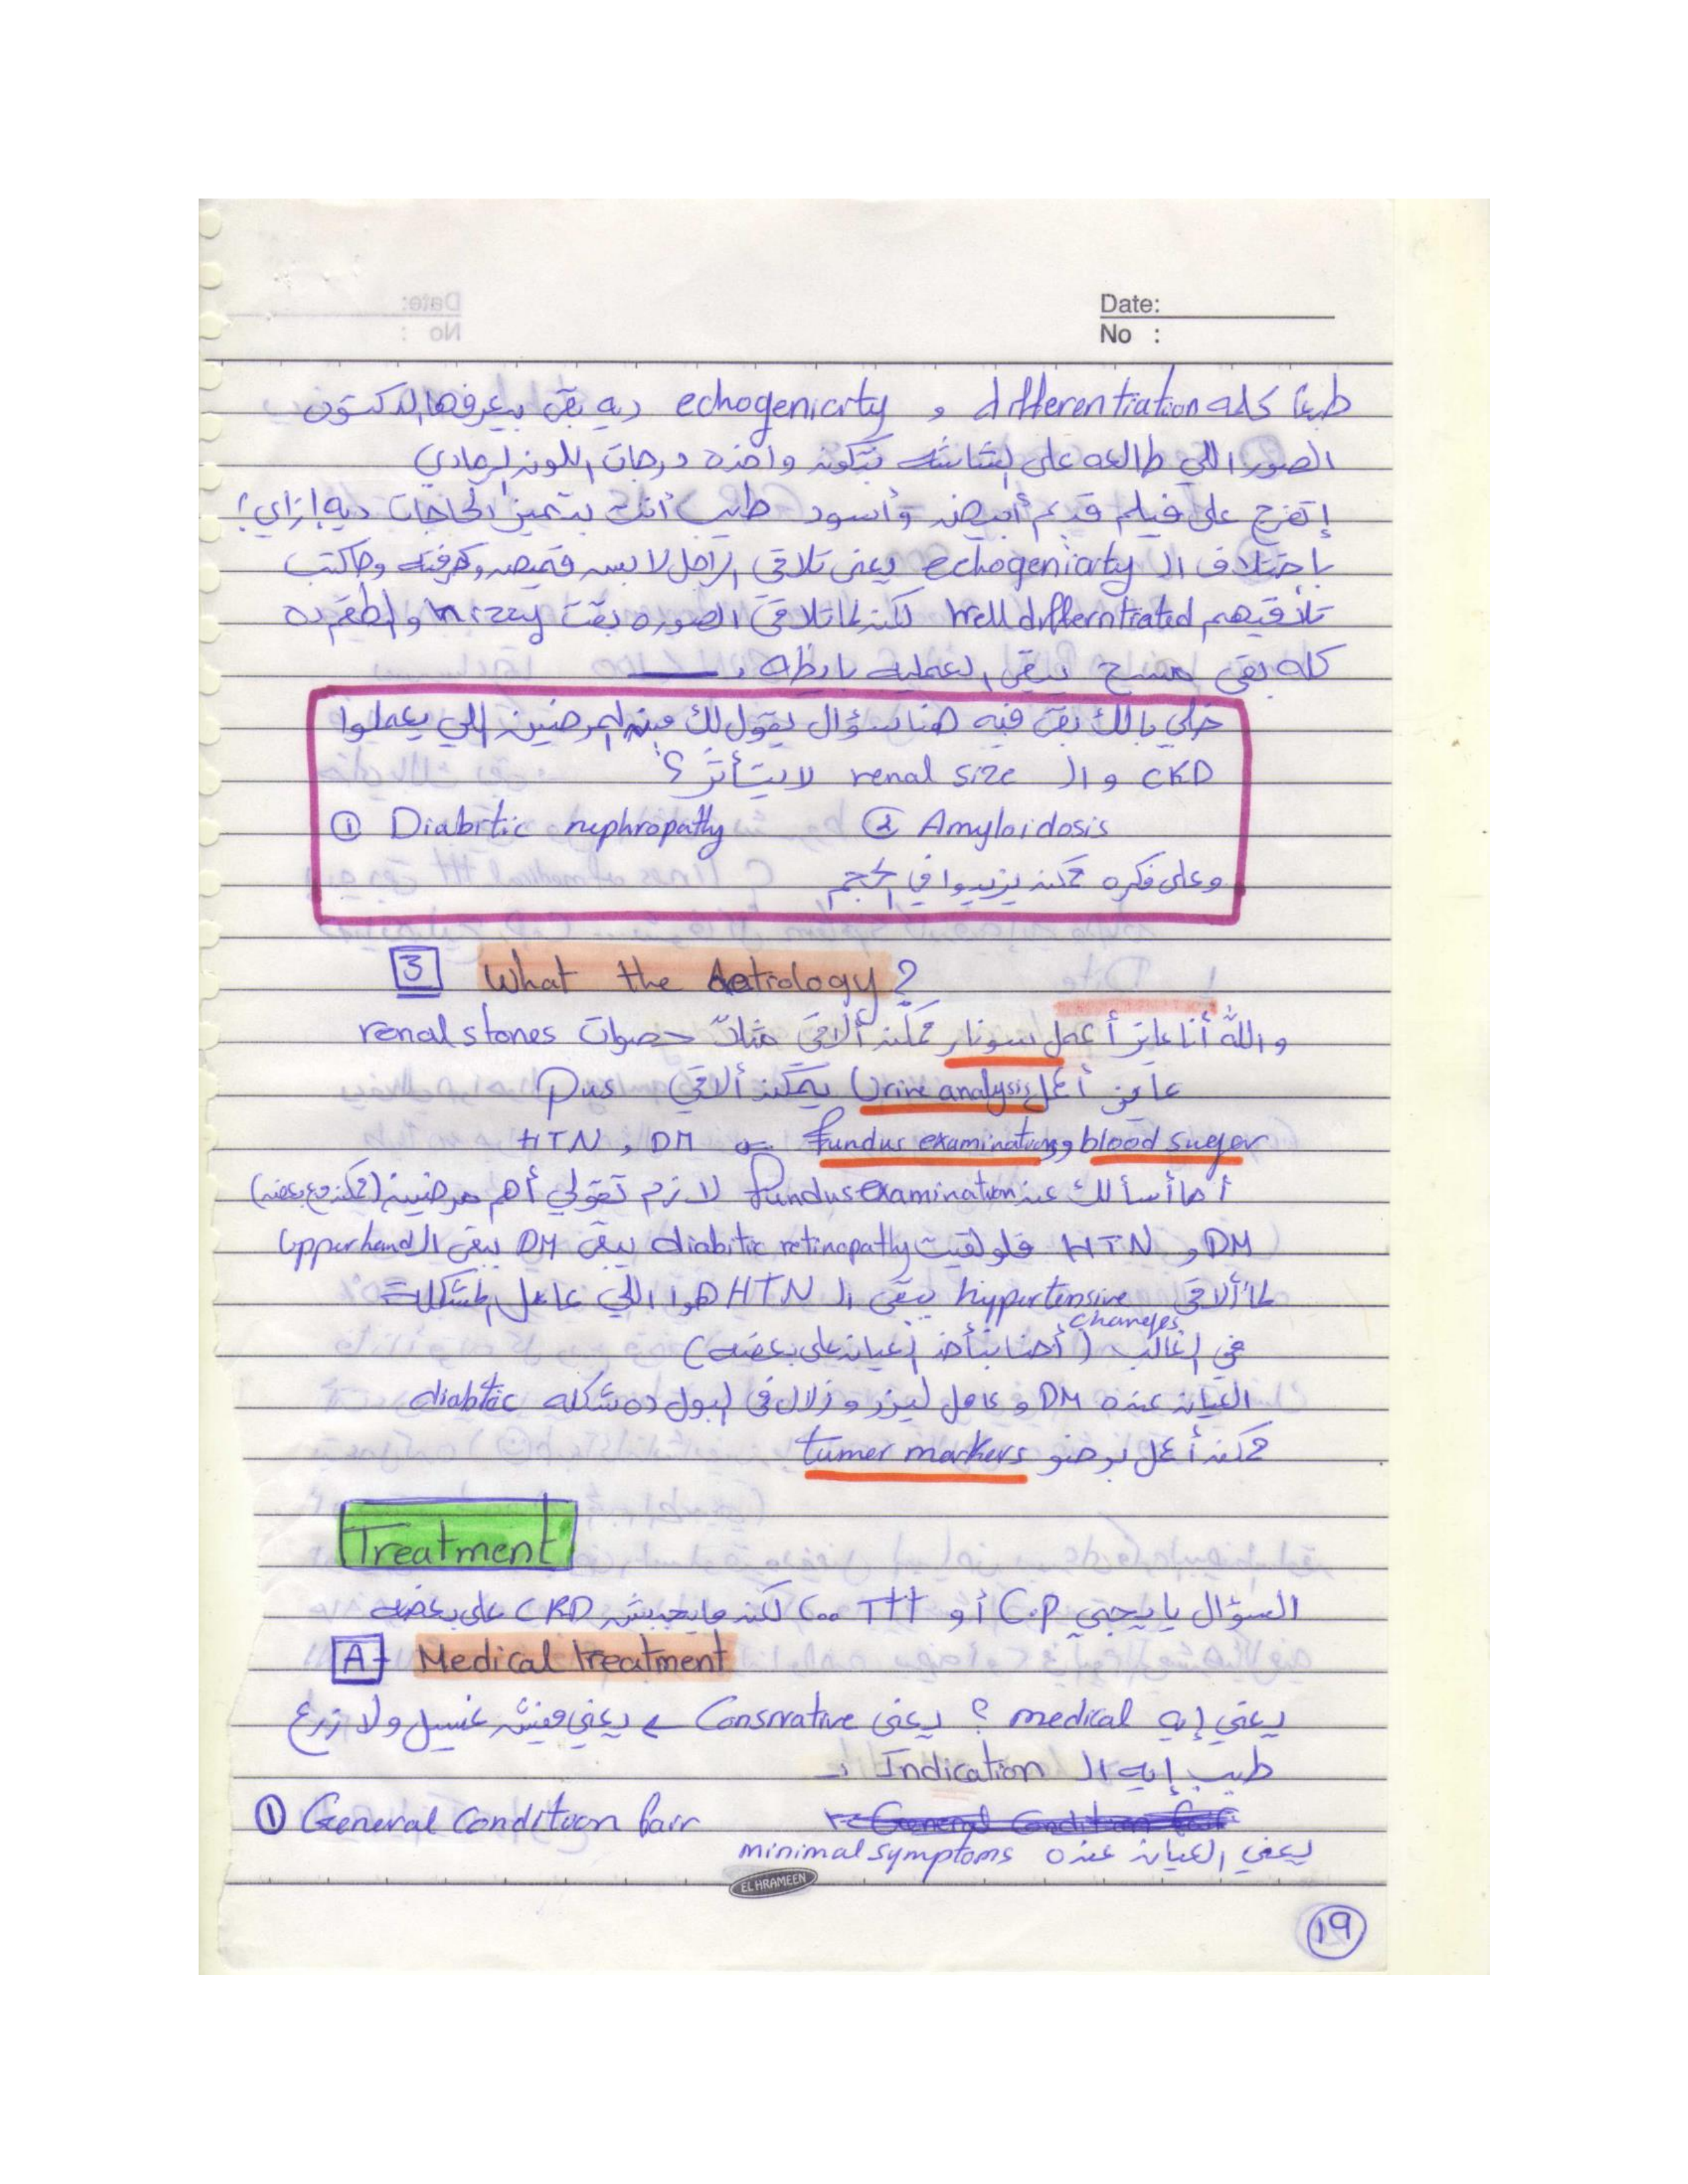 Date:
No :
طبعا كلمة differentiation و echogenicity ديه بقى بيعرفها الدكتور
الصور اللي طالعه على الشاشه بتكون واخده درجات اللون الرمادي
إتفرج على فيلم قديم أبيض وأسود طيب أنت بتميز الحاجات ديه إزاي؟
بإختلاف الـ echogenicity يعني تلاقي الراجل لابس قميص وكرفته وجاكت
تلاقيهم Well differntiated لكن لما تلاقي الصوره بقت hizzy والطقم ده
كله بقى مسح يبقى العمليه بايظه
خلي بالك بقى فيه هنا سؤال يقول لك مين المرضين اللي يعملوا
CKD و الـ renal size لا يتأثر ؟
① Diabitic nephropathy ② Amyloidosis
وعلى فكره ممكن يزيدوا في الحجم
3 What the Aetiology ?
والله أنا عايز أعمل سونار ممكن ألاقي مثلاً حصوات renal stones
عايز أعمل Urine analysis يمكن ألاقي Pus
blood suger و fundus examination HTN , DM
أما أسألك عن fundus examination لازم تقولي أهم مرضين (ممكن مع بعض)
DM و HTN فلو لقيت diabitic retinopathy يبقى DM يبقى الـ upperhand
لما ألاقي hypertensive changes يبقى الـ HTN هوا اللي عامل المشكلة
في الغالب (أحنا بنأخد العيان على بعضه)
العيان عنده DM و عامل ليزر و زلال في البول ده شكله diabtic
ممكن أعمل برضو tumer markers
Treatment
السؤال يا يجي C.P أو TTT لكن مايجيش CKD على بعضه
A- Medical treatment
يعني إيه medical ؟ يعني Consrvative ← يعني مفيش غسيل ولا زرع
طيب إيه الـ Indication
① General Condition fair
يعني العيان عنده minimal symptoms
EL HRAMEEN
١٩